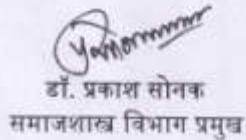 डॉ. प्रकाश सोनक
समाजशास्त्र विभाग प्रमुख